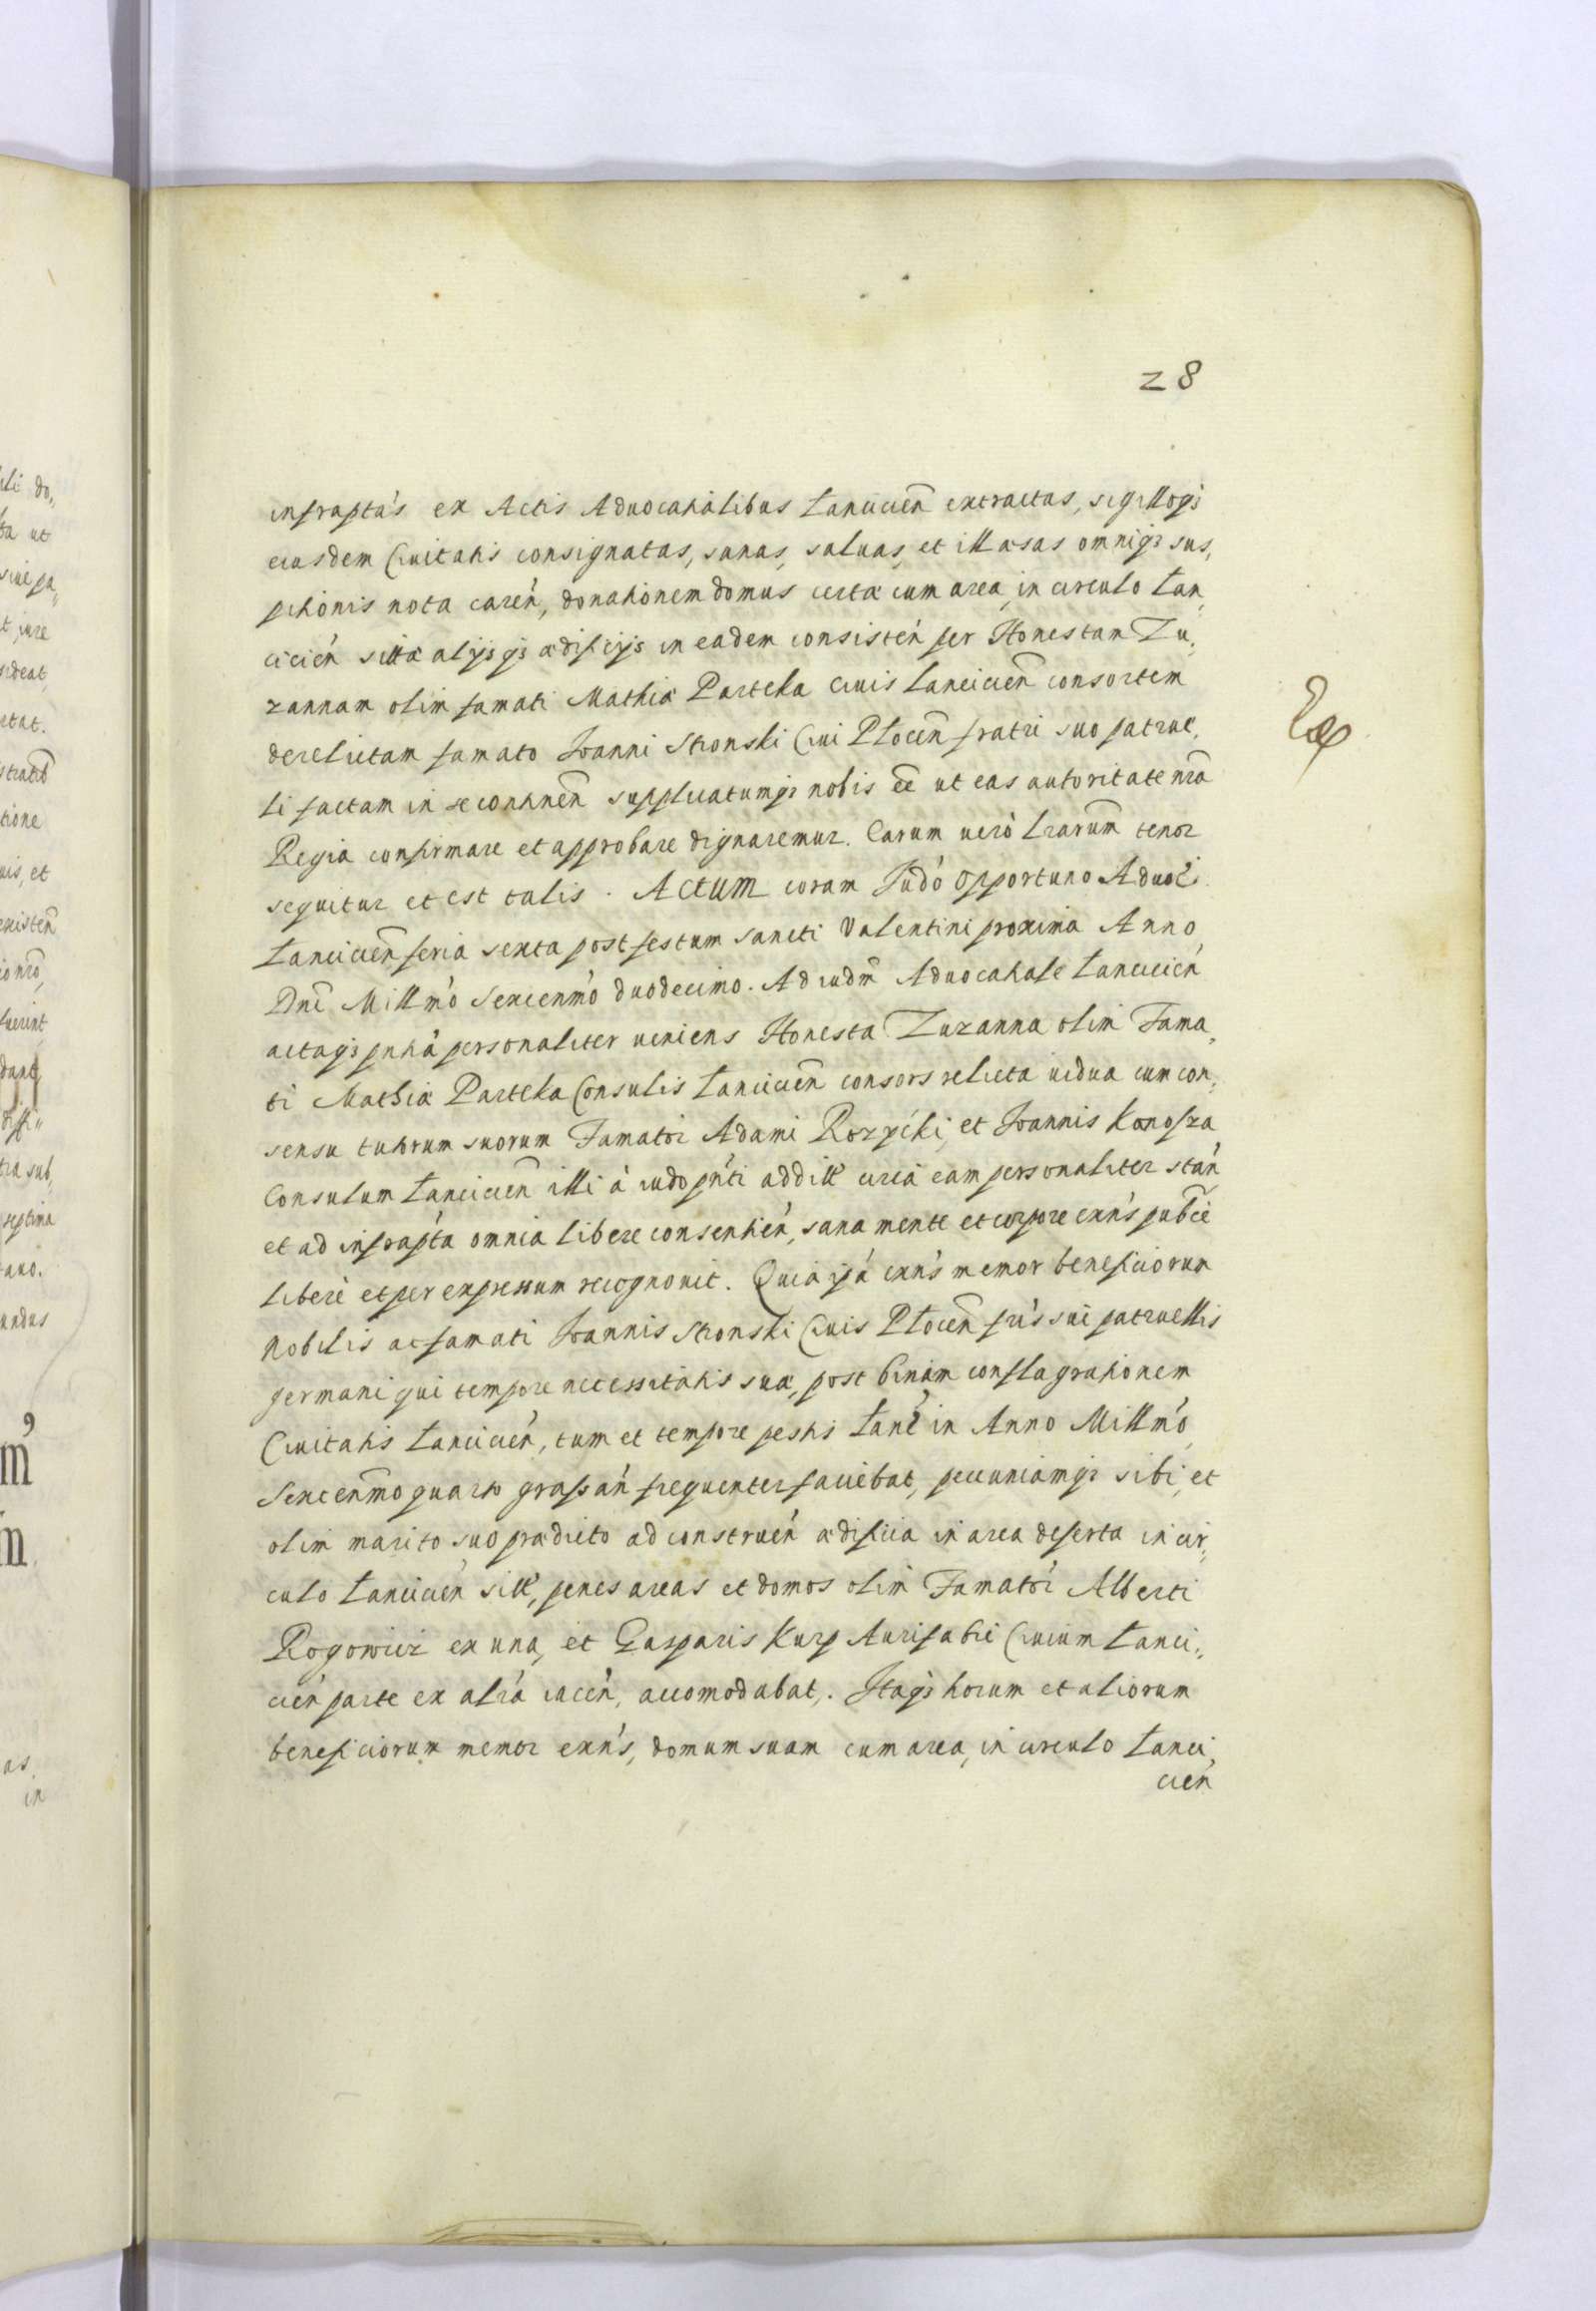 28
infraptás ex Actis Aduocatialibus Lanciciēn extractas, sigilloqʒ
eiusdem Ciuitatis consignatas, sanas, saluas, et illæsas omniqʒ sus,
pitionis nota carén, donationem domus certæ cum area, in circulo Lan,
cicién sittæ alijsqʒ ædificijs in eadem consistén per Honestam Zu,
zannam olim famati Mathiæ Parteka ciuis Lanciciēn consortem
derelictam famato Ioanni Stronski Ciui Plocēn fratri suo patrue,
li factam in se continēn supplicatumqʒ nobis ēē ut eas autoritate nrā
Regia confirmare et approbare dignaremur. Earum uerò lrarūm tenor
sequitur et est talis. Actum coram Iudó opportuno Aduoli
Lanciciēn feria sexta post festum sancti Valentini proxima Anno
Dnī Millmó Sexcenmó duodecimo. Ad iudm̄ Aduocatiale Lancicién
actaqʒ pntiá personaliter ueniens Honesta Zuzanna olim Fama,
ti Mathiæ Parteka Consulis Lanciciēn consors relicta uidua cum con,
sensu tutorum suorum Famator Adami Rozycki, et Ioannis Konopza
Consulum Lanciciēn illi à iudo pńti additt circa eam personaliter stán
et ad infrapta omnia libere consentién, sana mente et corpore exńs pubcē
liberè et per expressum recognouit. Quia ipá exńs memor beneficiorum
Nobilis ac famati Ioannis Stronski Ciuis Plocēn fris sui patruellis
germani qui tempore necessitatis suæ, post binam conflagrationem
Ciuitatis Lancicién, tum et tempore pestis Lanć in Anno Millmó
Sexcenmo quarto grassán frequenter faciebat, pecuniamqʒ sibi, et
olim marito suo prædicto ad construén ædificia in area deserta in cir,
culo Lancicién sitt, penes areas et domos olim Famator Alberti
Rogowicz ex una, et Gasparis Kurp Aurifabri Ciuium Lanci,
cién parte ex altrá iacén, accomodabat,. Itaqʒ horum et aliorum
beneficiorum memor exńs, domum suam cum area, in circulo Lanci,
cién